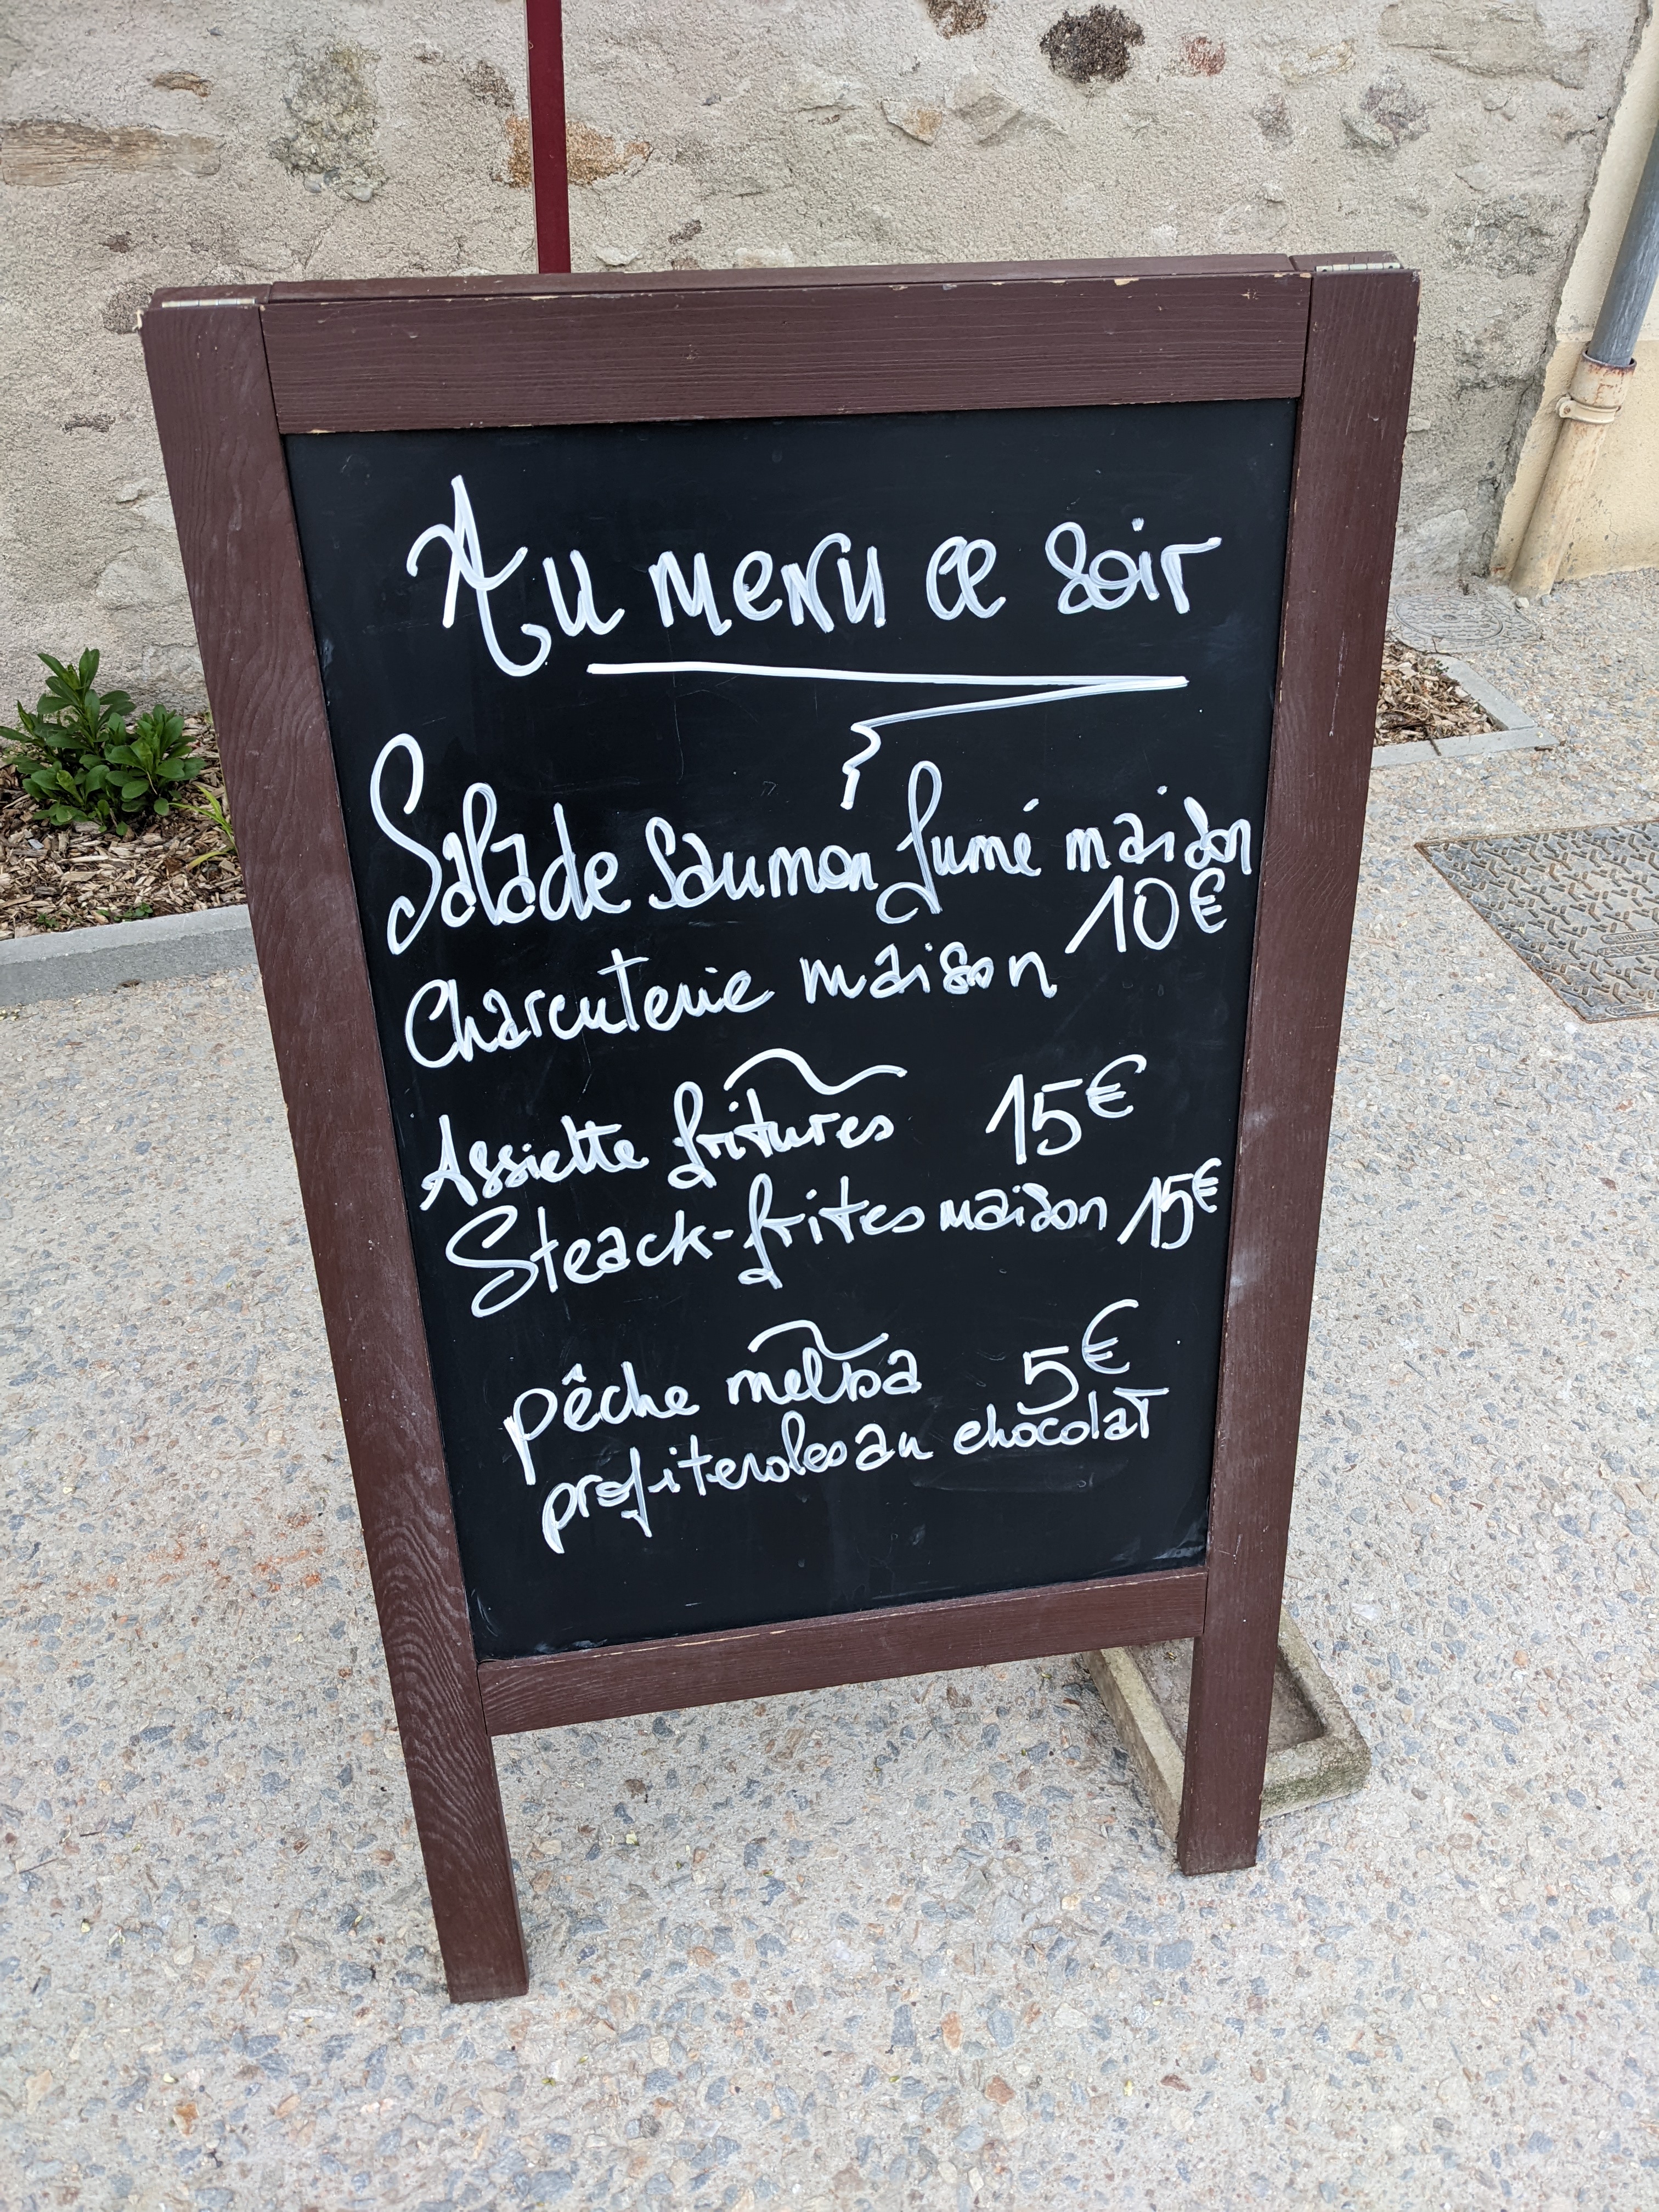 Au menu ce soir
Salade saumon fumé maison
10€
Charcuterie maison
Assiette fritures 15€
Steack-frites maison 15€
pêche melba 5€
profiteroles au chocolat